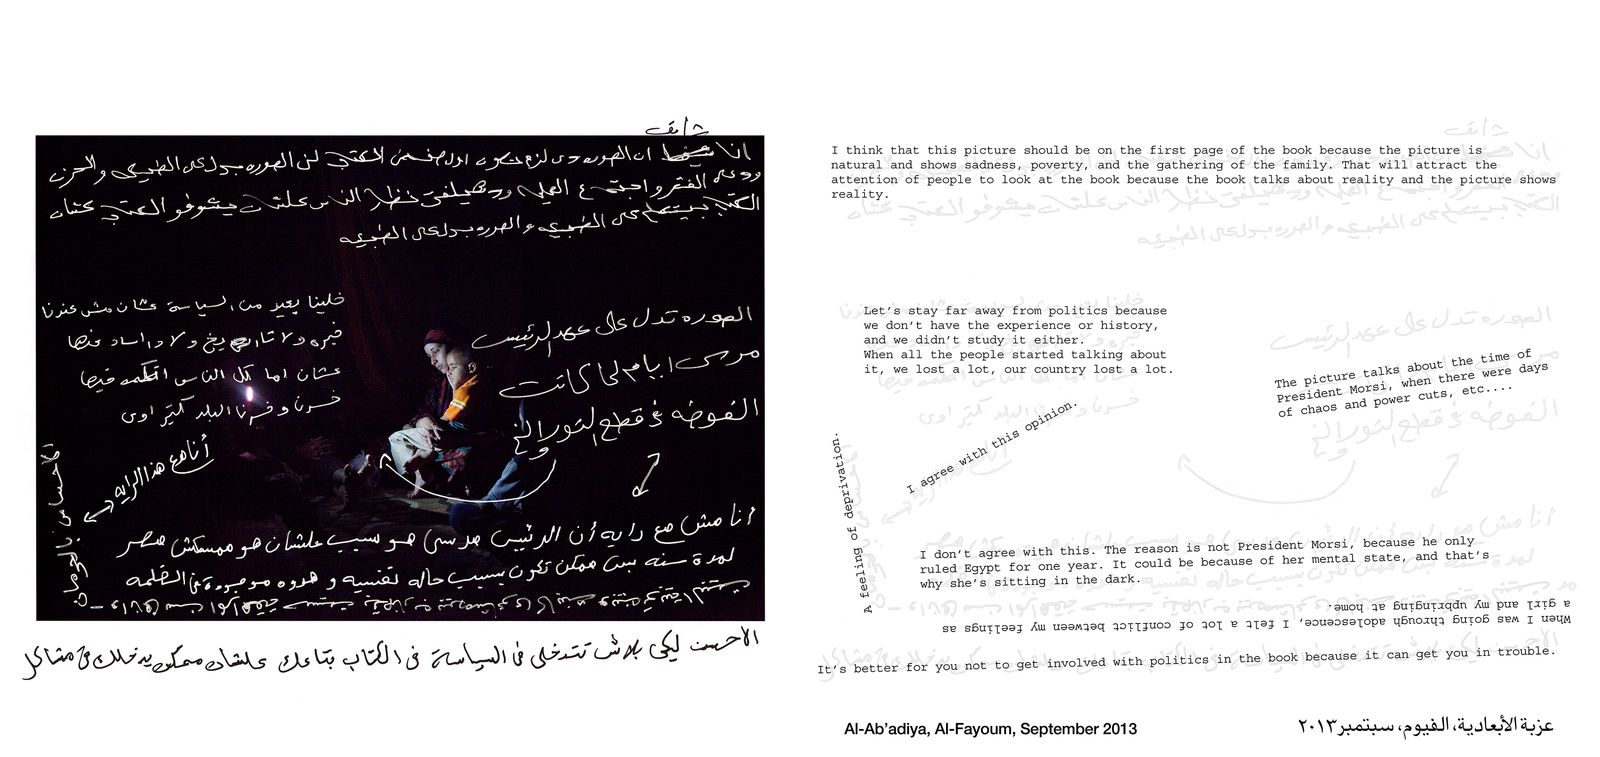 شايف
انا ان الصوره دى لزم تكون اول صفحه من الكتاب لان الصوره بدل على الطبيعى والحزن
الفقر واجتماع العيله ودهيلفت نظر الناس علشان يشوفو الكتاب عشان
الكتاب على الطبيعه والصوره بدل على الطبيعه
خلينا بعيد من السياسة عشان مش عندنا
خبره ولا تاريخ ولا دراساه
عشان اما كل الناس اتكلمه فيها
خسرنا وخسرنا البلد كتير اوى
الصوره تدل على عهد الرئيس
مرسى ايام لما كانت
الفوضه فى قطع النور والخ
أنا مع هذا الرايه
الاحساس بالحرمان
أنا مش مع رايه أن الرئيس مرسى هو سبب علشان هو ممسكش مصر
لمدة سنه بس ممكن تكون بسبب حاله نفسيه و هوه موجودة فى الضلمه
الاحسن ليكى بلاش تتدخلى فى السياسة فى الكتاب بتاعك علشان ممكن يدخلك فى مشاكل
I think that this picture should be on the first page of the book because the picture is
natural and shows sadness, poverty, and the gathering of the family. That will attract the
attention of people to look at the book because the book talks about reality and the picture shows
reality.
Let's stay far away from politics because
we don't have the experience or history,
and we didn't study it either.
When all the people started talking about
it, we lost a lot, our country lost a lot.
The picture talks about the time of
President Morsi, when there were days
of chaos and power cuts, etc....
I agree with this opinion.
A feeling of deprivation.
I don't agree with this. The reason is not President Morsi, because he only
ruled Egypt for one year. It could be because of her mental state, and that's
why she's sitting in the dark.
When I was going through adolescence, I felt a lot of conflict between my feelings as
a girl and my upbringing at home.
It's better for you not to get involved with politics in the book because it can get you in trouble.
Al-Ab'adiya, Al-Fayoum, September 2013
عزبة الأبعادية، الفيوم، سبتمبر ٢٠١٣